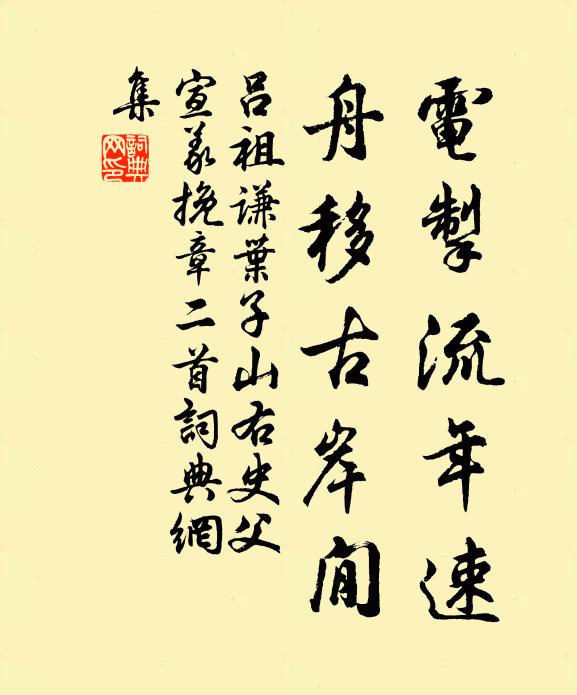 電掣流年速
舟移古岸閒
吕祖謙葉子山右史父
宣義挽章二首詞典網
集
詞典网印